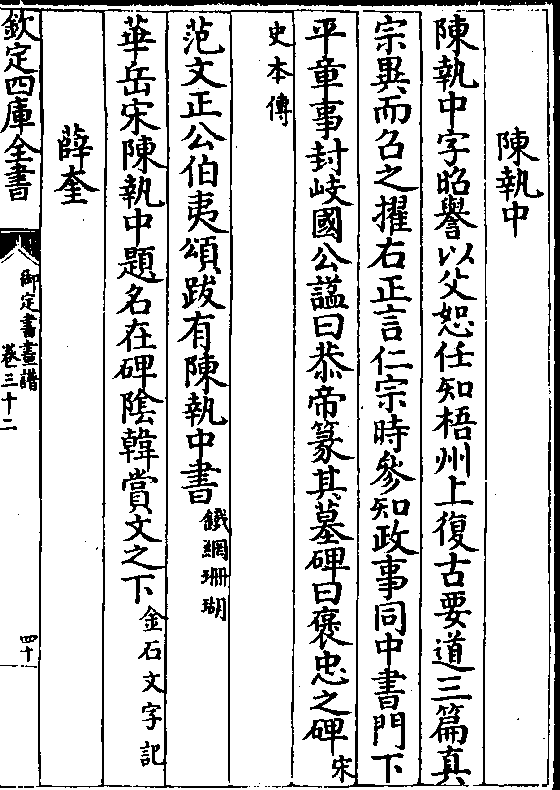 陳執中
陳執中字昭譽以父恕任知梧州上復古要道三篇真
宗異而召之擢右正言仁宗時參知政事同中書門下
平章事封岐國公諡曰恭帝篆其墓碑曰褒忠之碑宋
史本傳
范文正公伯夷頌跋有陳執中書鐵網珊瑚
華岳宋陳執中題名在碑陰韓賞文之下金石文字記
薛奎
欽定四庫全書
御定書畫譜
卷三十二
四十